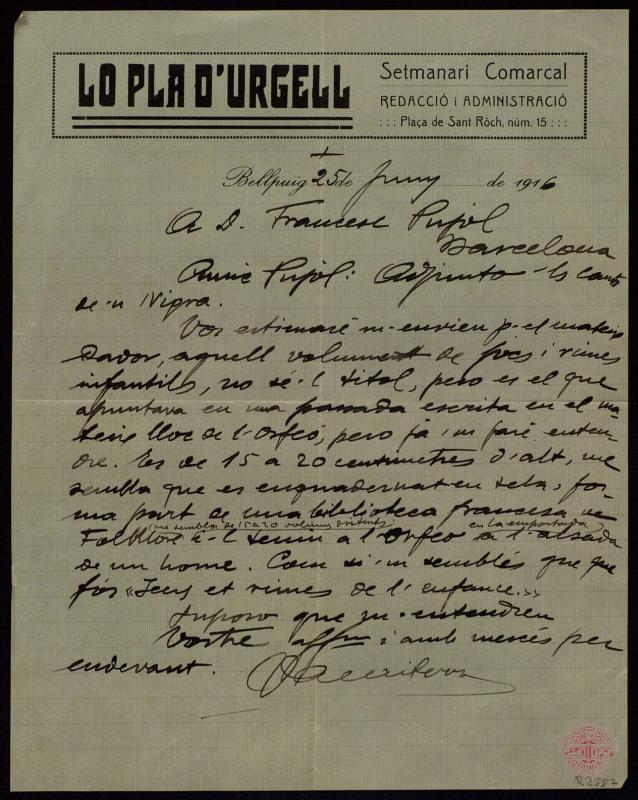 LO PLA D'URGELL
Setmanari Comarcal
REDACCIÓ i ADMINISTRACIÓ
::: Plaça de Sant Ròch, núm. 15 :::
+
Bellpuig 25 de Juny de 1916
A D. Francesc Pujol
Barcelona
Amic Pujol: Adjunto-ls cants
de-n Nigra.
Vos estimaré m-envieu p-el mateix
dador, aquell volumet de jocs i rimes
infantils, no sé-l titol, pero es el que
apuntava en una passada escrita en el ma-
teix lloc de l'Orfeó, pero ja i-m faré enten-
dre. Es de 15 a 20 centimetres d'alt, me
sembla que es enquadernat en tela, for-
ma part de una biblioteca francesa de
(me sembla de 15 a 20 volums distints)
Folklore i-l tenim a l'Orfeó en la a l'alsada
de un home. Com si-m semblés que que
fós «Jeux et rimes de l'enfance.»
Suposo que m-entendreu
Vostre affm i amb mercés per
endevant.
R2557